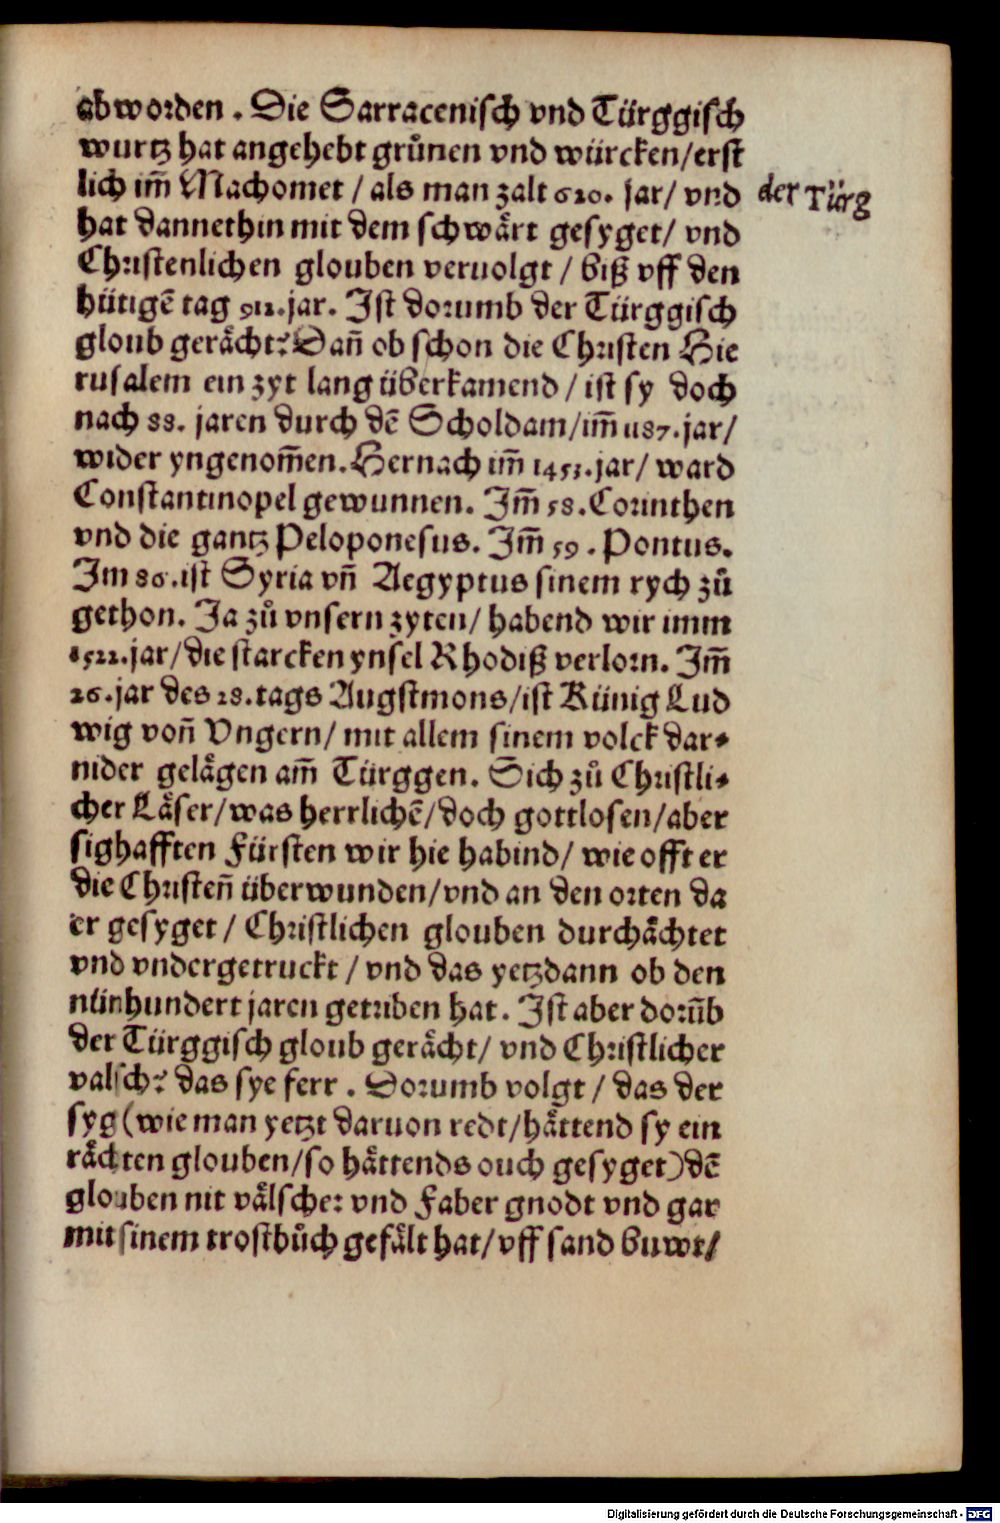 abworden . Die Sarracenisch vnd Türggisch
wurtz hat angehebt gruͦnen vnd würcken/erst
lich im̃ Machomet / als man zalt 620. jar/ vnd
der Türg
hat dannethin mit dem schwaͤrt gesyget/ vnd
Christenlichen glouben veruolgt / biß vff den
hütigẽ tag 912.jar. Ist dorumb der Türggisch
gloub geraͤcht? Dañ ob schon die Christen Hie
rusalem ein zyt lang überkamend / ist sy doch
nach 88. jaren durch dẽ Scholdam/im̃ 1187.jar/
wider yngenom̃en. Hernach im̃ 1453.jar/ ward
Constantinopel gewunnen. Im̃ 58. Corinthen
vnd die gantz Peloponesus. Im̃ 59 . Pontus.
Im 86.ist Syria vñ Aegyptus sinem rych zuͦ
gethon. Ja zuͦ vnsern zyten/ habend wir imm
1522.jar/die starcken ynsel Rhodiß verlorn. Im̃
26.jar des 28.tags Augstmons/ist Künig Lud
wig voñ Vngern/ mit allem sinem volck dar⸗
nider gelaͤgen am̃ Türggen. Sich zuͦ Christli⸗
cher Laͤser/was herrlichẽ/doch gottlosen/aber
sighafften Fürsten wir hie habind/ wie offt er
die Christeñ überwunden/vnd an den orten da
er gesyget / Christlichen glouben durchaͤchtet
vnd vndergetruckt / vnd das yetzdann ob den
nünhundert jaren getriben hat. Ist aber dorũb
der Türggisch gloub geraͤcht/ vnd Christlicher
valsch? das sye ferr . Dorumb volgt / das der
syg (wie man yetzt daruon redt/haͤttend sy ein
raͤchten glouben/so haͤttends ouch gesyget) dẽ
glouben nit vaͤlschet vnd Faber gnodt vnd gar
mit sinem trostbuͦch gefaͤlt hat/ vff sand buwt/
Digitalisierung gefördert durch die Deutsche Forschungsgemeinschaft - DFG